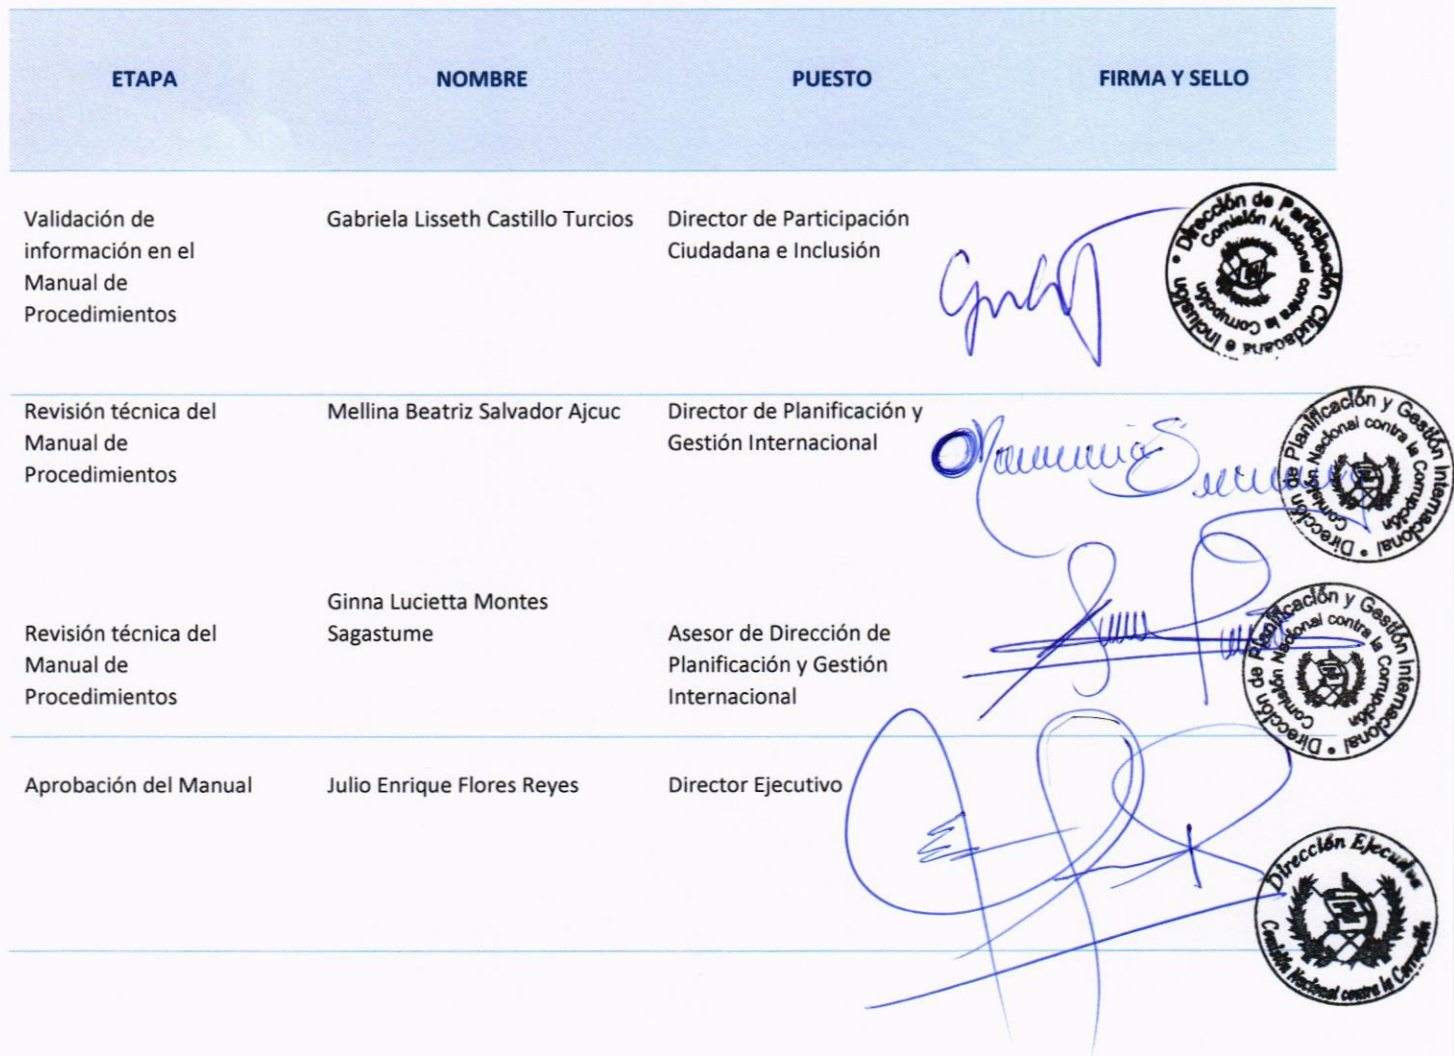 ETAPA NOMBRE PUESTO FIRMA Y SELLO
Validación de
información en el
Manual de
Procedimientos
Gabriela Lisseth Castillo Turcios
Director de Participación
Ciudadana e Inclusión
Dirección de Participación Ciudadana e Inclusión
Comisión Nacional contra la Corrupción
Revisión técnica del
Manual de
Procedimientos
Mellina Beatriz Salvador Ajcuc
Director de Planificación y
Gestión Internacional
Dirección de Planificación y Gestión Internacional
Comisión Nacional contra la Corrupción
Revisión técnica del
Manual de
Procedimientos
Ginna Lucietta Montes
Sagastume
Asesor de Dirección de
Planificación y Gestión
Internacional
Dirección de Planificación y Gestión Internacional
Comisión Nacional contra la Corrupción
Aprobación del Manual
Julio Enrique Flores Reyes
Director Ejecutivo
Dirección Ejecutiva
Comisión Nacional contra la Corrupción